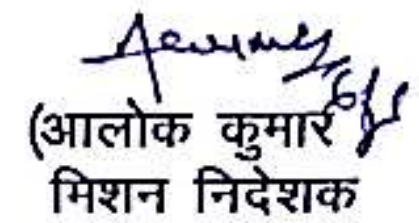 (आलोक कुमार
मिशन निदेशक